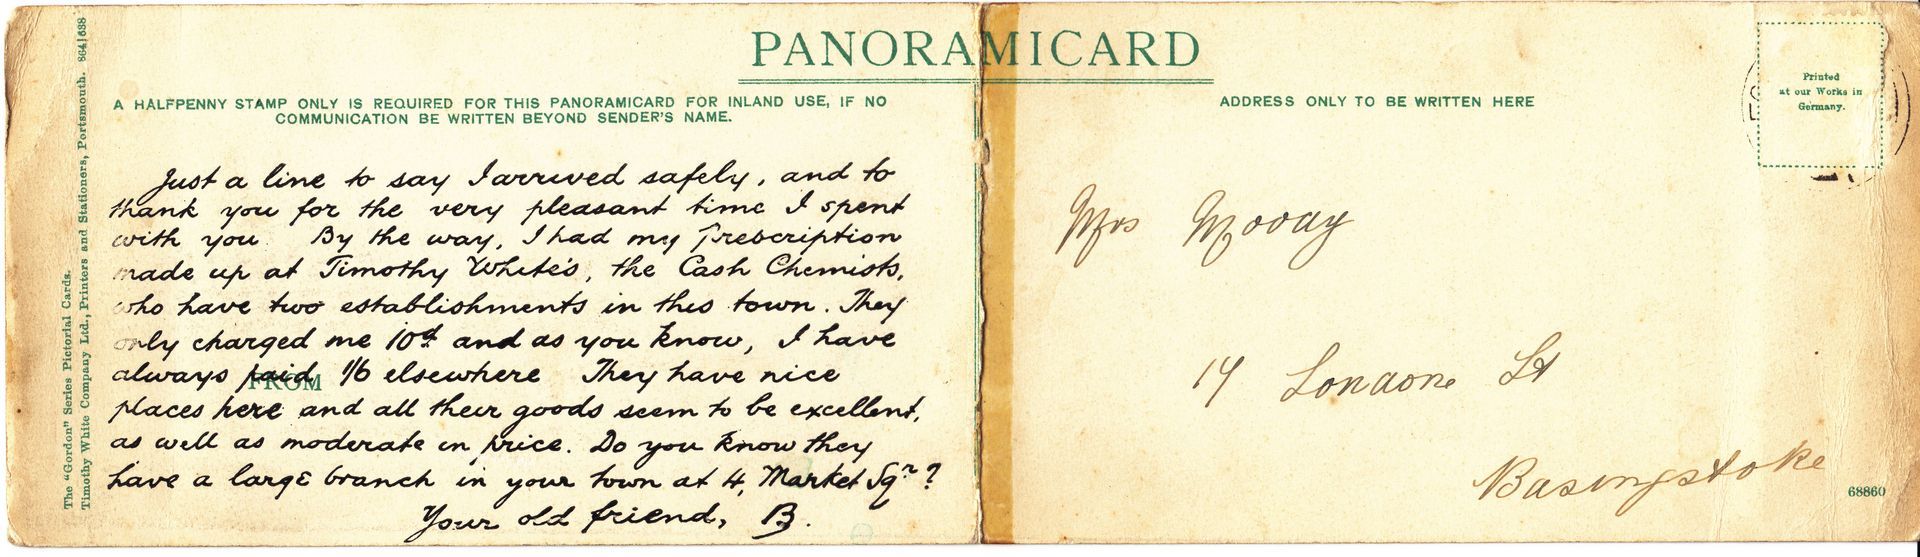 PANORAMICARD
A HALFPENNY STAMP ONLY IS REQUIRED FOR THIS PANORAMICARD FOR INLAND USE, IF NO
COMMUNICATION BE WRITTEN BEYOND SENDER'S NAME.
The "Gordon" Series Pictorial Cards.
Timothy White Company Ltd., Printers and Stationers, Portsmouth. 864|638
Just a line to say I arrived safely, and to
thank you for the very pleasant time I spent
with you. By the way, I had my Prescription
made up at Timothy White's, the Cash Chemists,
who have two establishments in this town. They
only charged me 10d and as you know, I have
always paid 1/6 elsewhere They have nice
FROM
places here and all their goods seem to be excellent,
as well as moderate in price. Do you know they
have a large branch in your town at 4, Market Sqr?
Your old friend, B.
ADDRESS ONLY TO BE WRITTEN HERE
Printed
at our Works in
Germany.
Mrs
London St
Basingstoke
68860